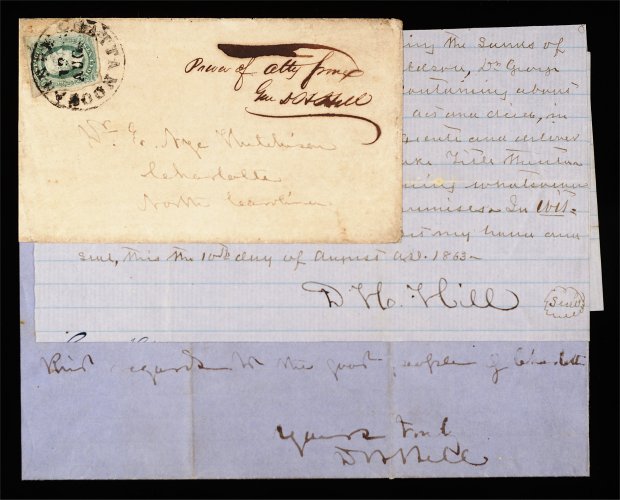 CHATTANOOGA
AUG
12
Power of atty from
Gen D H Hill
Mr E. Nye Hutchison
Charlotte
North Carolina
ing the lands of
George
containing about
act and deed, in
and deliver
Title
whatsoever
premises. In Wit-
my hand and
seal, this the 10th day of August A.D. 1863
D H. Hill
Seal
Kind regards to the good people of Charlotte
Yours Truly
D H Hill